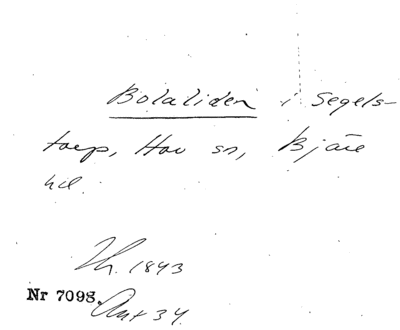 Bolaliden i Segels-
torp, Hov sn, Bjäre
hd.
Th. 1843
Nr 7098. Ant 34